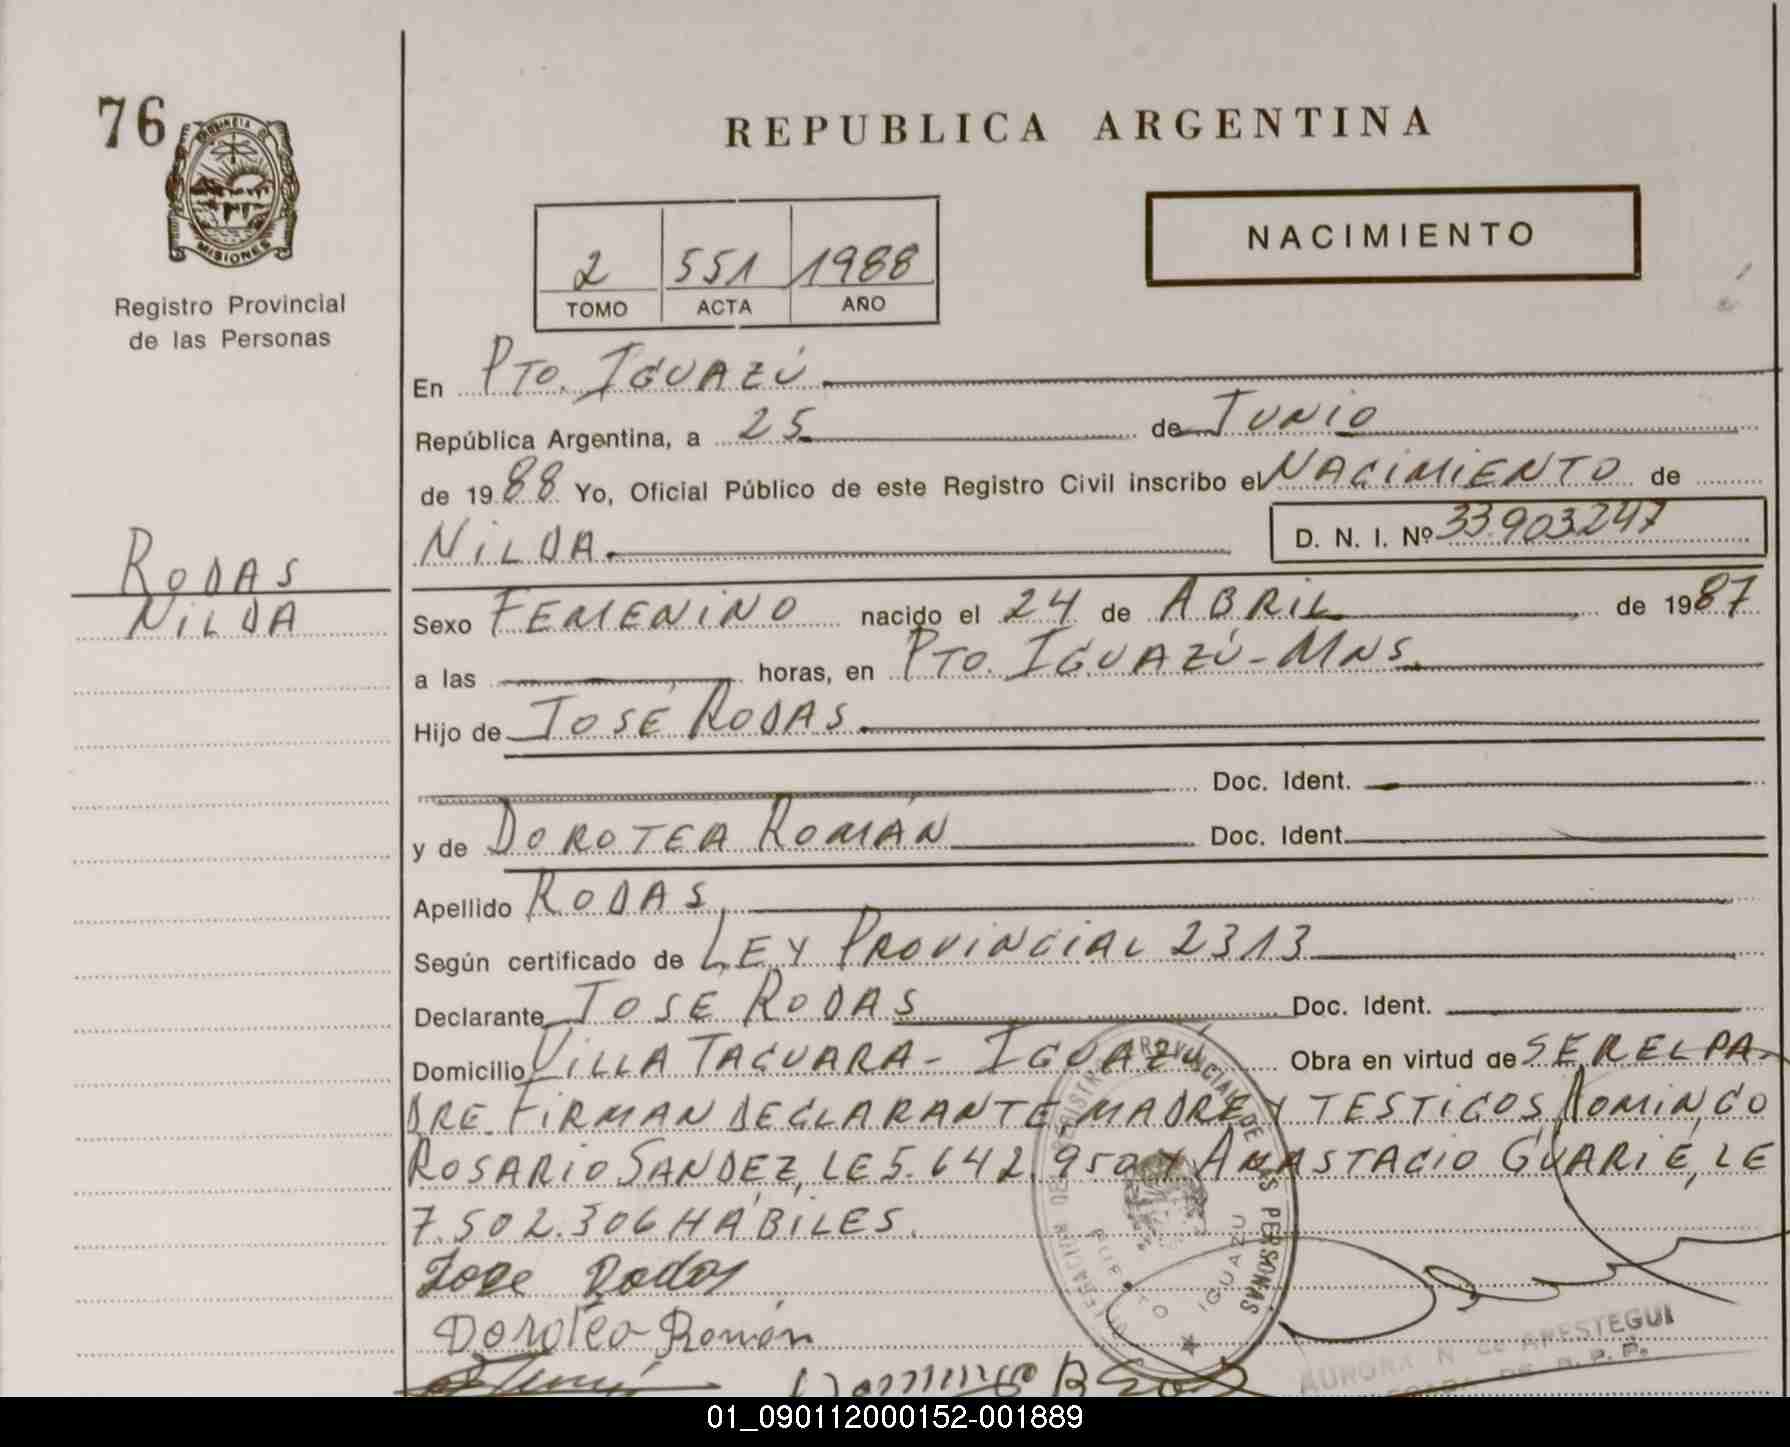 76
PROVINCIA DE
MISIONES
Registro Provincial
de las Personas
REPUBLICA ARGENTINA
2 551 1988
TOMO ACTA AÑO
NACIMIENTO
En PTO. IGUAZÚ
República Argentina, a 25 de JUNIO
de 1988 Yo, Oficial Público de este Registro Civil inscribo el NACIMIENTO de
NILDA. D. N. I. Nº 33.903.247
RODAS
NILDA
Sexo FEMENINO nacido el 24 de ABRIL de 1987
a las horas, en PTO. IGUAZÚ - MNS.
Hijo de JOSÉ RODAS.
Doc. Ident.
y de DOROTEA ROMÁN Doc. Ident.
Apellido RODAS
Según certificado de LEY PROVINCIAL 2313
Declarante JOSE RODAS Doc. Ident.
Domicilio VILLA TACUARA - IGUAZÚ Obra en virtud de SER EL PA-
DRE. FIRMAN DECLARANTE, MADRE Y TESTIGOS, DOMINGO
ROSARIO SANDEZ, LE 5.642.950 Y ANASTACIO GUARIÉ, LE
7.502.306 HÁBILES.
Jose Rodas
Doroteo Román
Domingo R
REGISTRO PROVINCIAL DE LAS PERSONAS
PUERTO IGUAZU
AURORA N de APESTEGUI
01_090112000152-001889